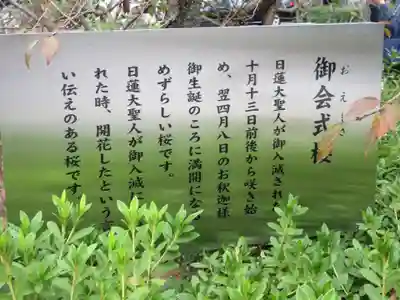 御会式桜
おえしき
日蓮大聖人が御入滅され
十月十三日前後から咲き始
め、翌四月八日のお釈迦様
御生誕のころに満開にな
めずらしい桜です。
日蓮大聖人が御入滅
れた時、開花したという
い伝えのある桜です